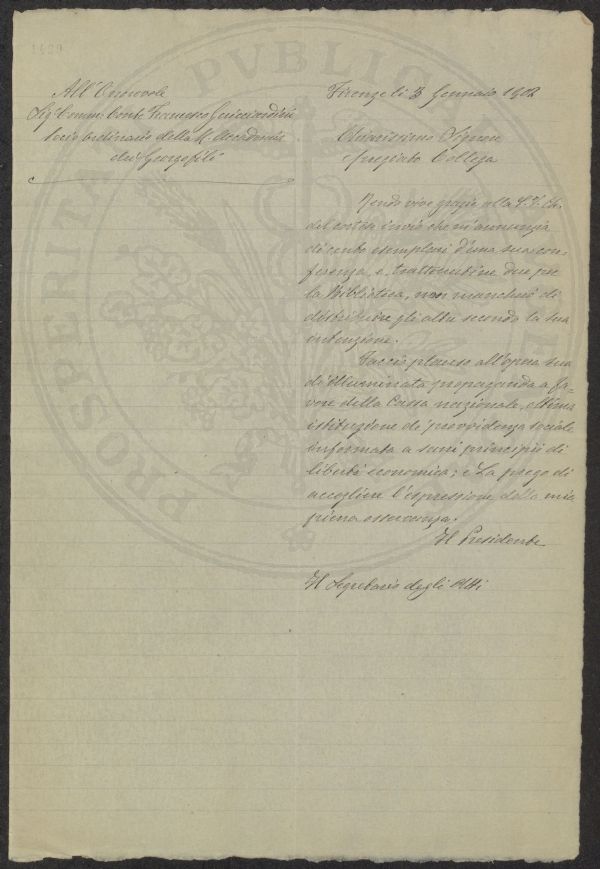 All'Onorevole
Sig. Comm. Conte Francesco Guicciardini
socio ordinario della R. Accademia
dei Georgofili
Firenze li 3 Gennaio 1902
Chiarissimo Signore
Pregiato Collega
Rendo vive grazie alla S. V. Ch.
del cortese invio che m'annunzia
di cento esemplari d'una sua con
ferenza, e, trattenutine due per
la Biblioteca, non mancherò di
distribuire gli altri secondo la sua
intenzione.
Faccio plauso all'opera sua
di illuminata propaganda a fa-
vore della Cassa nazionale, ottima
istituzione di previdenza sociale
informata a sani principii di
libertà economica; e La prego di
accogliere l'espressione della mia
piena osservanza.
Il Presidente
Il Segretario degli Atti
PROSPERITATI PUBLICAE